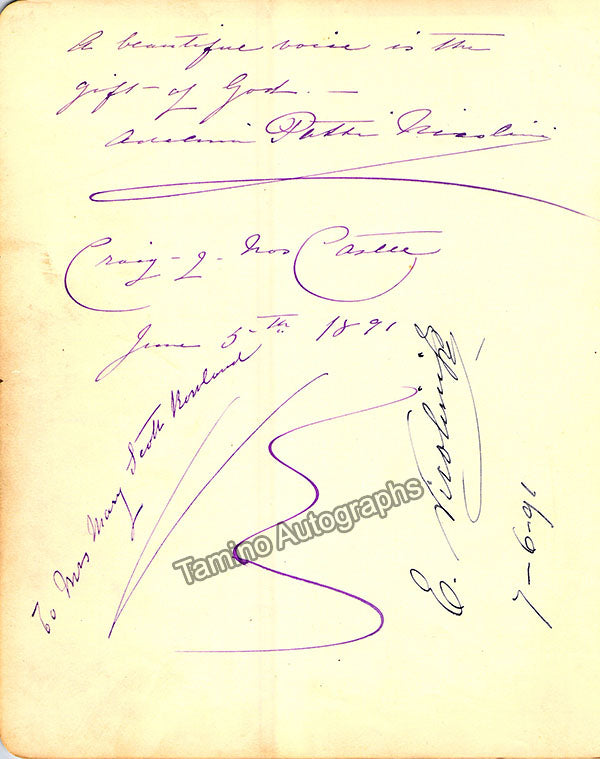 A beautiful voice is the
gift of God. —
Adelina Patti Nicolini
Craig-y-Nos Castle
June 5th 1891
To Mrs Mary Scott Rowland
E. Nicolini
7-6-91
Tamino Autographs